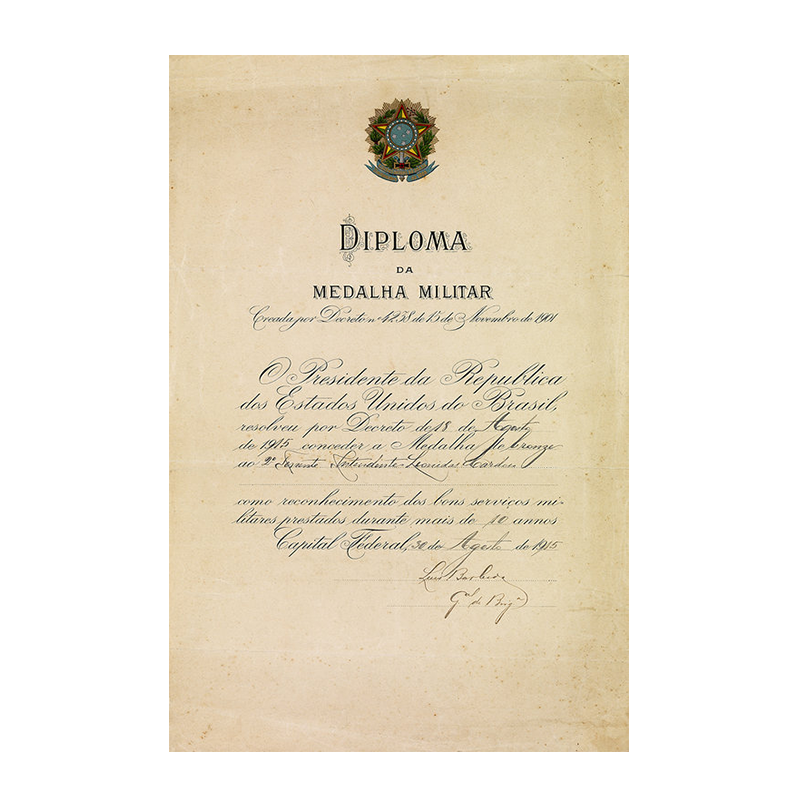 DIPLOMA
DA
MEDALHA MILITAR
Creada por Decreto nº 4238 de 15 de Novembro de 1901
O Presidente da Republica
dos Estados Unidos do Brasil,
resolveu por Decreto de 18 de Agosto
de 1915 conceder a Medalha de bronze
ao 2º Tenente Intendente Leonidas Cardoso
como reconhecimento dos bons serviços mi-
litares prestados durante mais de 10 annos
Capital Federal, 30 de Agosto de 1915
Luis Barbedo
Gal de Briga